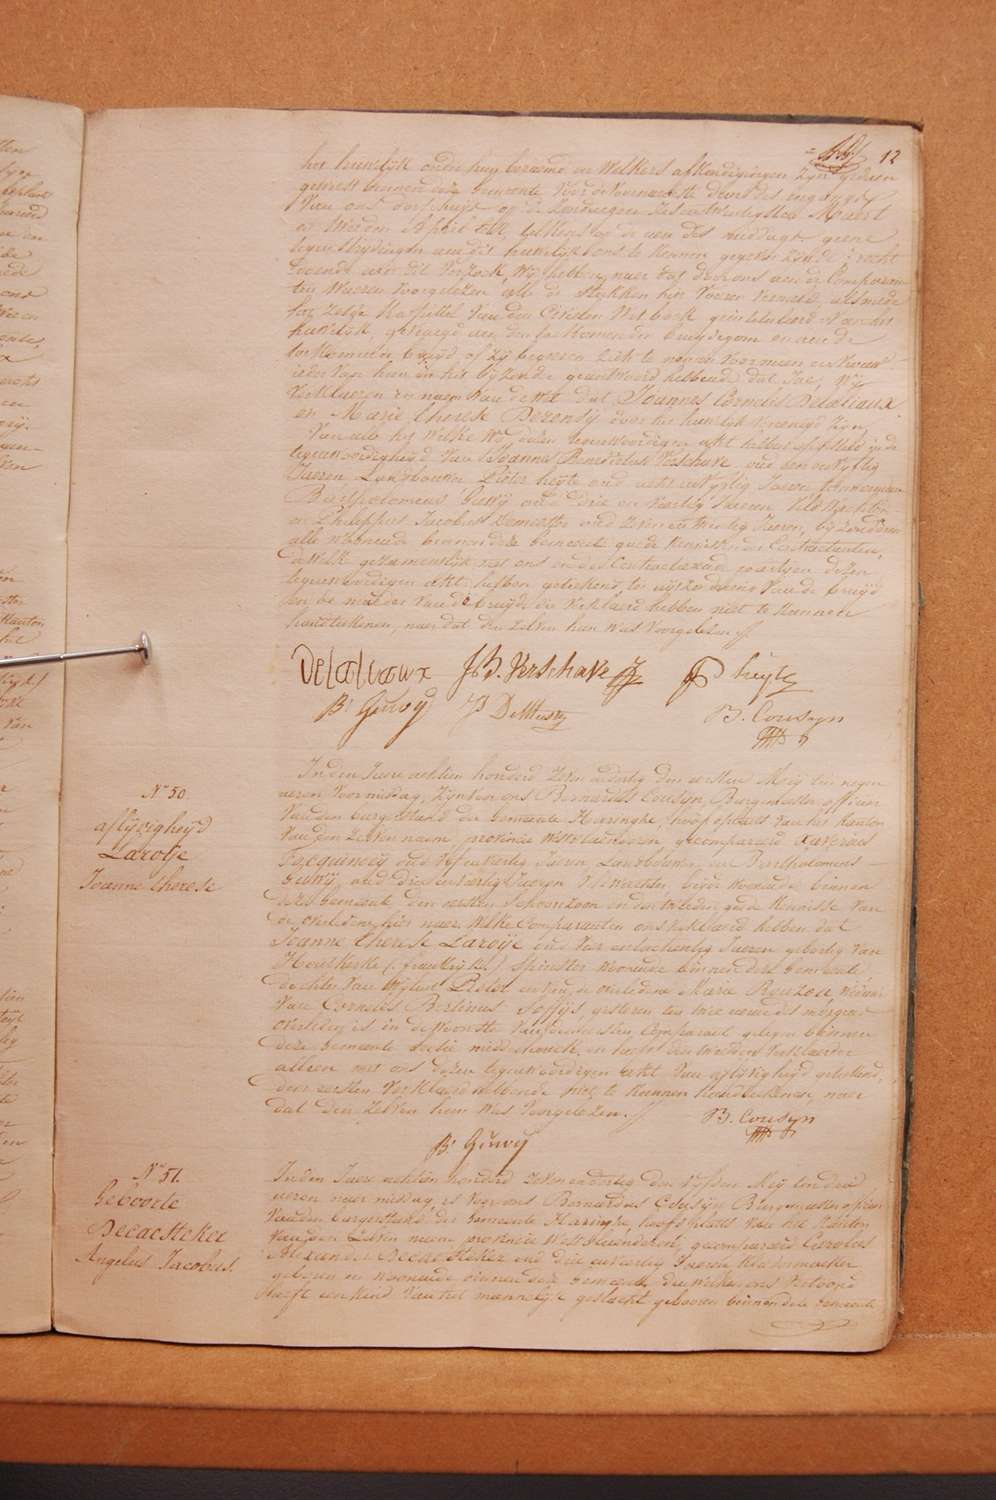 12
het huwelijk onder hun beraemd en welkers afkondigingen zijn gedaen
geweest binnen deze gemeente voor de voornaemste deure des ingangs
van ons dorphuys op de zondagen zes en twintig Maert
en tweeden April telkens de uer des middags geene
tegenstrydigheden aen dit huwelijk ons te kennen gegeven zynde recht
doende aen dit verzoek, wij hebben, naer dat door ons aen de Comparan-
ten waeren voorgelezen alle de stukken hier voeren vermeld alsmede
het zesde Kapittel van den Civielen Wetboek geintituleerd van het
huwelijk, gevraegd aen den toekomenden bruydegom en aen de
toekomende bruyd of zij begeeren zich te nemen voor man en vrouw
ieder van hun in het byzonder geantwoord hebbende dat Jae; Wij
verklaeren in naem van de wet dat Joannes Cornelis Delaliaux
en Marie Therese Derensy door het huwelyk vereenigd zyn
Van alle het welke wij dezen tegenwoordigen akt hebben opgesteld in de
tegenwoordigheyd van Joannes Benedictus Verschave oud een en vyftig
Jaeren Landbouwer Pieter heyte oud acht en vyftig Jaeren
Bartholomeus Guwij oud drie en veertig Jaeren Veldwachter
en Philippus Jacobus Demeester oud zeven en twintig Jaeren, byzonderen
alle woonende binnen deze Gemeente goede kennissen der Contractanten,
dewelke gezamentlyk met ons en de Contractanten dezen
tegenwoordigen akt hebben geteekend ten uytzonderinge van de bruyd
en de moeder van de bruyd die verklaerd hebben niet te kunnen
handteekenen, naer dat den zelven hun was voorgelezen
Delaliaux J B. Verschave P heyte
B. Guwy P J DeMeester B. Cousyn
N° 50.
aflyvigheyd
Laroije
Joanne Therese
In den Jaere achtien honderd zeven en dertig den eersten Mey ten negen
ueren voormiddag, zyn voor ons Bernardus Cousyn, Burgemeester officier
van den burgerstand der gemeente Haringhe, hoofdplaets van het kanton
van den zelven naem, provincie Westvlaenderen gecompareerd Xaverius
Jacquincey oud vyf en veertig Jaeren Landbouwer en Bartholomeus
Guwij oud drie en veertig Jaeren Veldwachter, beyde woonende binnen
deze Gemeente den eersten schoonzoon en den tweeden goede kennisse van
de overledene hier naer welke Comparanten ons verklaerd hebben dat
Joanne Therese Laroije oud vier en tachentig Jaeren gebortig van
Houtkerke (frankryk) Spinster woonende binnen deze Gemeente
dochter van wylent Pieter en van de overledene Marie Rouzou Weduwe
van Cornelius Bertinus Soffys, gisteren ten twee ueren des morgens
overleden is in de woonste van den eersten Comparant gelegen binnen
deze Gemeente sectie middelhouck en heeft den tweeden verklaerder
alleen met ons dezen tegenwoordigen akt van aflyvigheyd geteekend,
den eersten verklaerd hebbende niet te kunnen handteekenen, naer
dat den zelven hun was voorgelezen.
B. Cousyn
B. Guwij
N° 51.
Geboorte
Decaesteker
Angelus Jacobus.
In den Jaere achtien honderd zeven en dertig den vyfden Mey ten dry
ueren naer middag, is voor ons Bernardus Cousyn Burgemeester officier
van den burgerstand der Gemeente Haringhe, hoofdplaets van het kanton
van den zelven naem provincie Westvlaenderen, gecompareerd Carolus
Alexander Decaesteker oud drie en veertig Jaeren
geboren en woonende binnen deze Gemeente die welke ons vertoond
heeft een kind van het mannelyk geslacht geboren binnen deze Gemeente